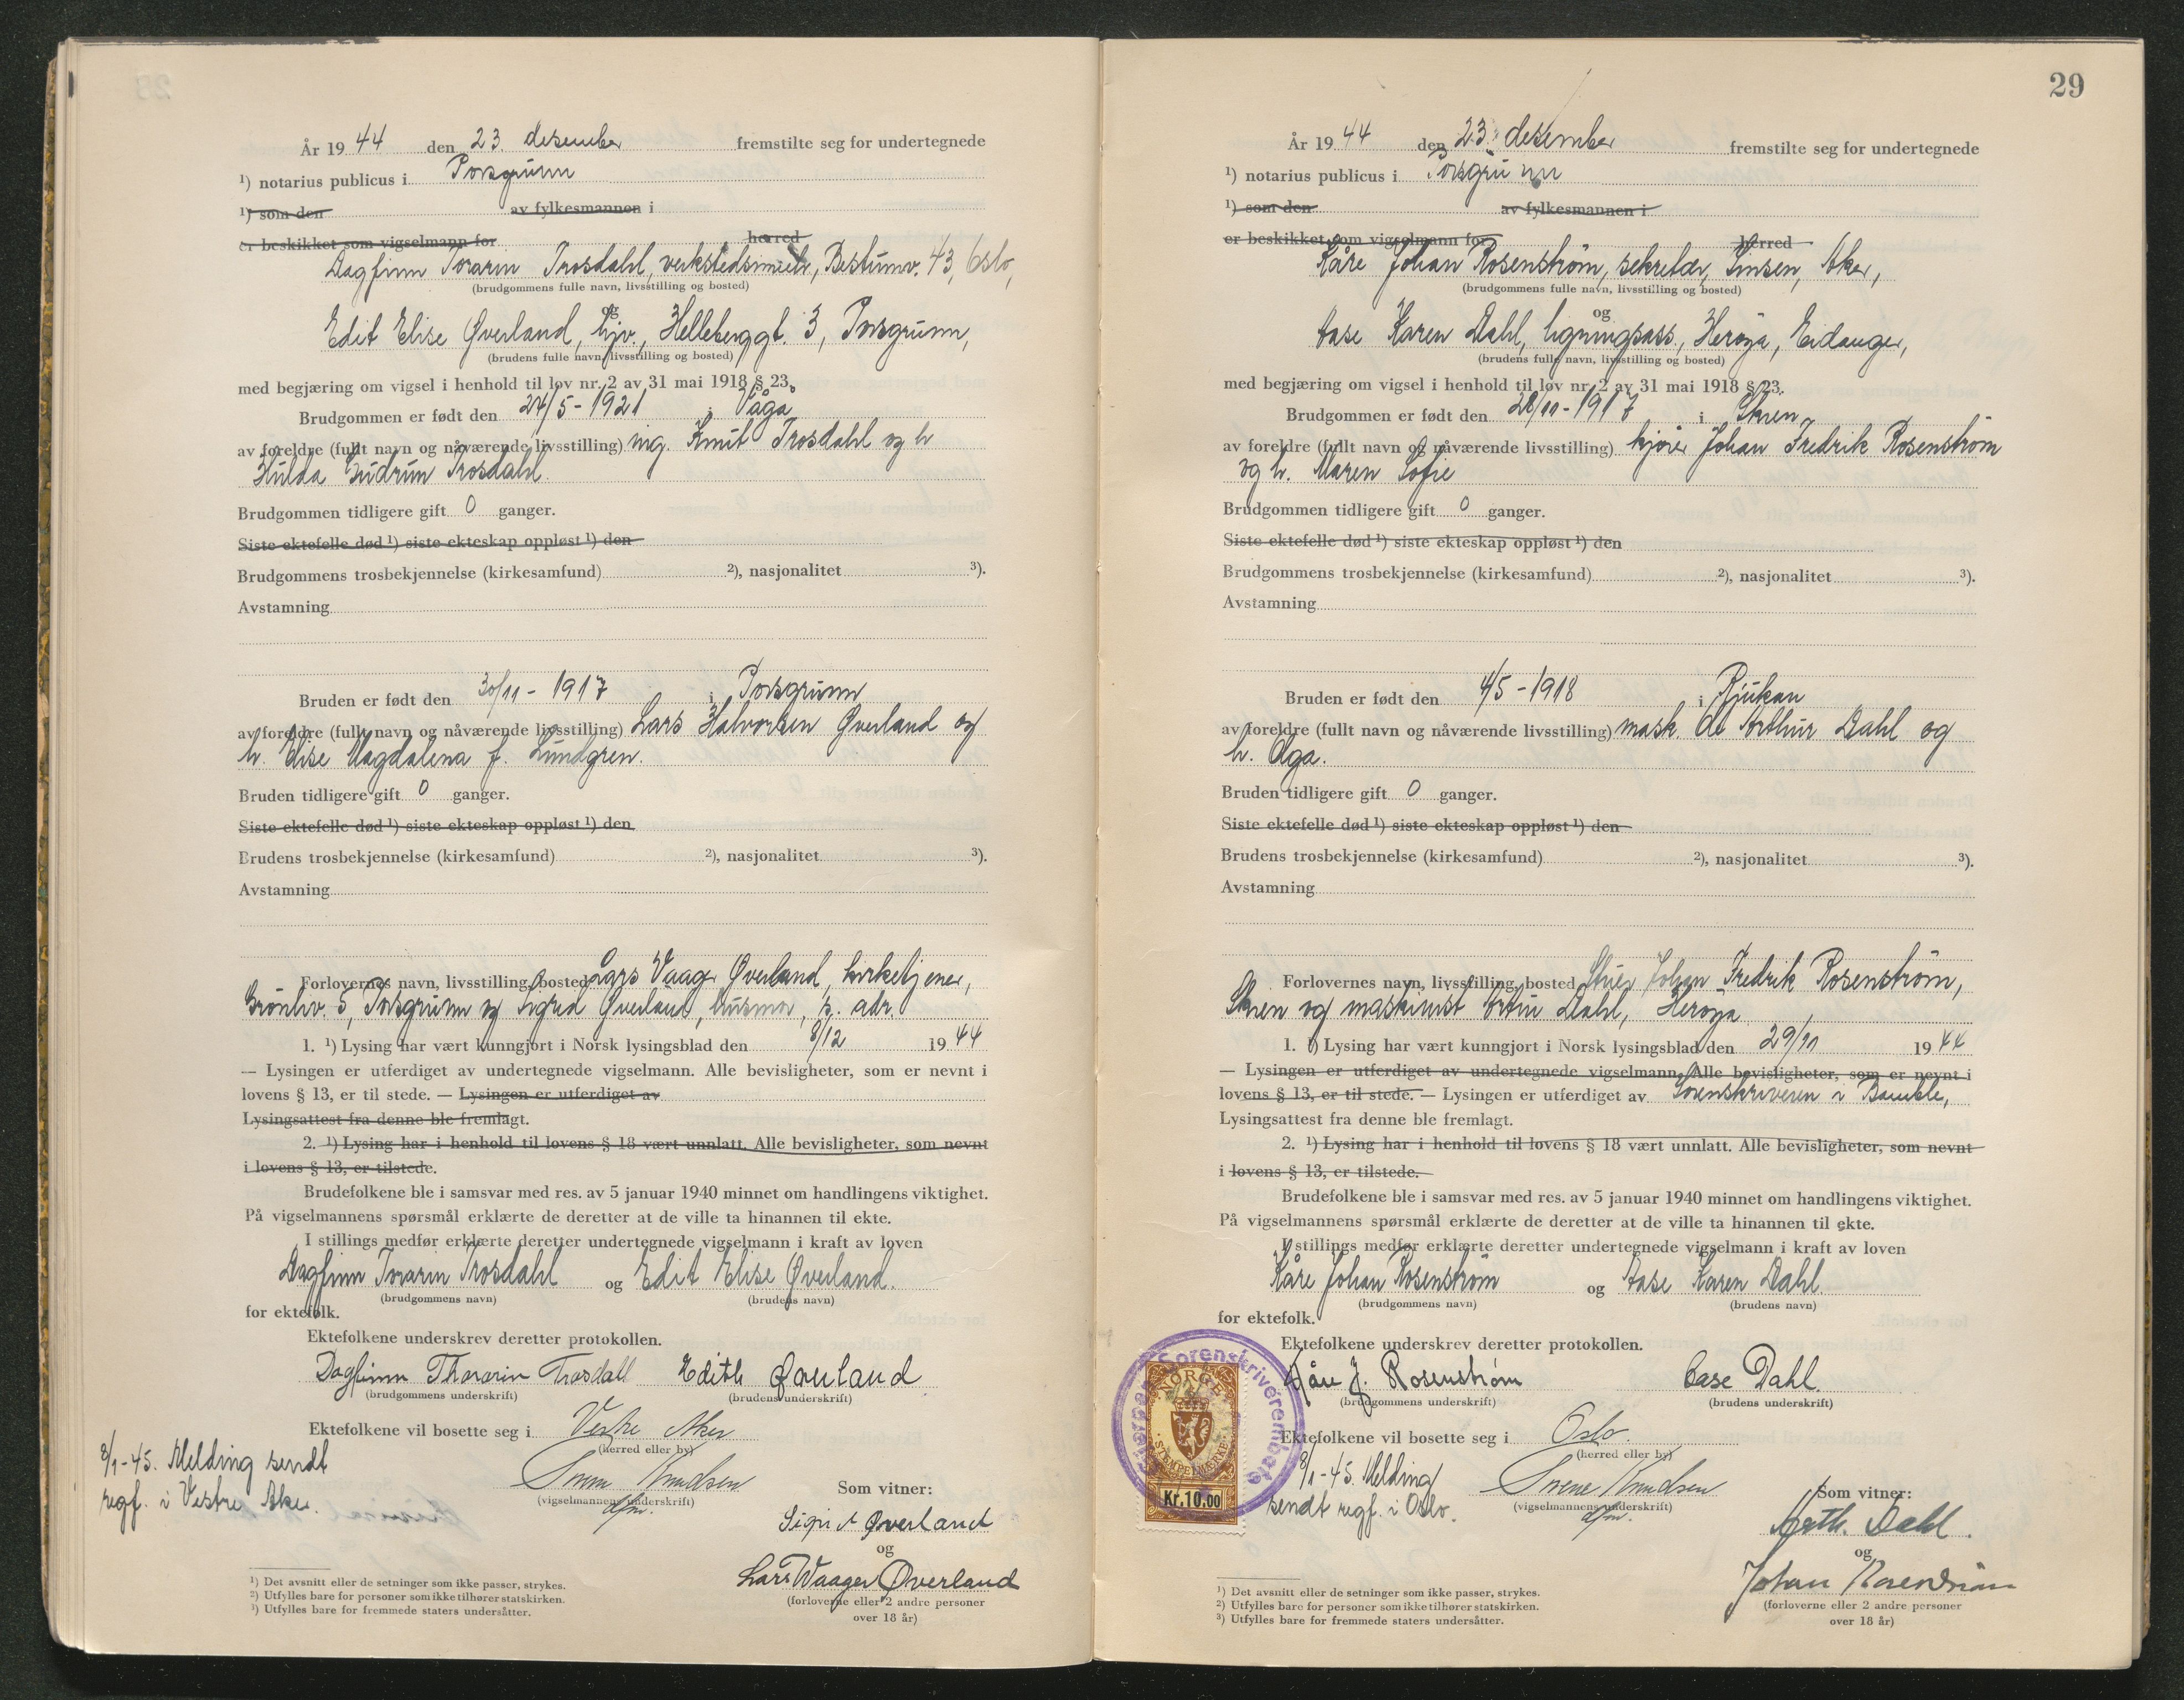 År 1944 den 23. desember fremstilte seg for undertegnede
¹) notarius publicus i Porsgrunn
¹) som den av fylkesmannen i
er beskikket som vigselmann for herred
Dagfinn Torarin Trosdahl, Bestumv. 43, Oslo,
(brudgommens fulle navn, livsstilling og bosted)
og
Edit Elise Øverland, hjv., Helleberggt. 3, Porsgrunn,
(brudens fulle navn, livsstilling og bosted)
med begjæring om vigsel i henhold til lov nr. 2 av 31 mai 1918 § 23.
Brudgommen er født den 24/5-1921 i Våga
av foreldre (fullt navn og nåværende livsstilling) ing. Knut Trosdahl og h
Hulda Gudrun Trosdahl.
Brudgommen tidligere gift 0 ganger.
Siste ektefelle død ¹) siste ekteskap oppløst ¹) den
Brudgommens trosbekjennelse (kirkesamfund) ²), nasjonalitet ³).
Avstamning
Bruden er født den 30/11-1917 i Porsgrunn
av foreldre (fullt navn og nåværende livsstilling) Lars Halvorsen Øverland og
h. Elise Magdalena f. Lundgren.
Bruden tidligere gift 0 ganger.
Siste ektefelle død ¹) siste ekteskap oppløst ¹) den
Brudens trosbekjennelse (kirkesamfund) ²), nasjonalitet ³).
Avstamning
Forlovernes navn, livsstilling, bosted Lars Vaager Øverland, kirketjener,
Grönliv. 5, Porsgrunn og Sigrid Øverland, husmor, s. adr.
1. ¹) Lysing har vært kunngjort i Norsk lysingsblad den 8/12 1944
— Lysingen er utferdiget av undertegnede vigselmann. Alle bevisligheter, som er nevnt i
lovens § 13, er til stede. — Lysingen er utferdiget av
Lysingsattest fra denne ble fremlagt.
2. ¹) Lysing har i henhold til lovens § 18 vært unnlatt. Alle bevisligheter, som nevnt
i lovens § 13, er tilstede.
Brudefolkene ble i samsvar med res. av 5 januar 1940 minnet om handlingens viktighet.
På vigselmannens spørsmål erklærte de deretter at de ville ta hinannen til ekte.
I stillings medfør erklærte deretter undertegnede vigselmann i kraft av loven
Dagfinn Torarin Trosdahl og Edit Elise Øverland.
(brudgommens navn) (brudens navn)
for ektefolk.
Ektefolkene underskrev deretter protokollen.
Dagfinn Thorarin Trosdahl Edith Øverland
(brudgommens underskrift) (brudens underskrift)
Ektefolkene vil bosette seg i Vestre Aker
(herred eller by)
8/1-45. Melding sendt
regf. i Vestre Aker.
Knudsen
(vigselmannens underskrift)
dfm.
Som vitner:
Sigrid Øverland
og
Lars Waager Øverland
(forloverne eller 2 andre personer
over 18 år)
¹) Det avsnitt eller de setninger som ikke passer, strykes.
²) Utfylles bare for personer som ikke tilhører statskirken.
³) Utfylles bare for fremmede staters undersåtter.
29
År 1944 den 23. desember fremstilte seg for undertegnede
¹) notarius publicus i Porsgrunn
¹) som den av fylkesmannen i
er beskikket som vigselmann for herred
Kåre Johan Rosenstrøm, sekretær, Sinsen, Aker,
(brudgommens fulle navn, livsstilling og bosted)
og
Aase Karen Dahl, ligningsass., Herøya, Eidanger,
(brudens fulle navn, livsstilling og bosted)
med begjæring om vigsel i henhold til lov nr. 2 av 31 mai 1918 § 23.
Brudgommen er født den 28/11-1917 i Skien
av foreldre (fullt navn og nåværende livsstilling) kjører Johan Fredrik Rosenstrøm
og h. Maren Sofie
Brudgommen tidligere gift 0 ganger.
Siste ektefelle død ¹) siste ekteskap oppløst ¹) den
Brudgommens trosbekjennelse (kirkesamfund) ²), nasjonalitet ³).
Avstamning
Bruden er født den 4/5-1918 i Rjukan
av foreldre (fullt navn og nåværende livsstilling) mask. Arthur Dahl og
h. Aga.
Bruden tidligere gift 0 ganger.
Siste ektefelle død ¹) siste ekteskap oppløst ¹) den
Brudens trosbekjennelse (kirkesamfund) ²), nasjonalitet ³).
Avstamning
Forlovernes navn, livsstilling, bosted Johan Fredrik Rosenstrøm,
Skien og maskinist Dahl, Herøya
1. ¹) Lysing har vært kunngjort i Norsk lysingsblad den 29/11 1944
— Lysingen er utferdiget av undertegnede vigselmann. Alle bevisligheter, som er nevnt i
lovens § 13, er til stede. — Lysingen er utferdiget av Sorenskriveren i Bamble,
Lysingsattest fra denne ble fremlagt.
2. ¹) Lysing har i henhold til lovens § 18 vært unnlatt. Alle bevisligheter, som nevnt
i lovens § 13, er tilstede.
Brudefolkene ble i samsvar med res. av 5 januar 1940 minnet om handlingens viktighet.
På vigselmannens spørsmål erklærte de deretter at de ville ta hinannen til ekte.
I stillings medfør erklærte deretter undertegnede vigselmann i kraft av loven
Kåre Johan Rosenstrøm og Aase Karen Dahl.
(brudgommens navn) (brudens navn)
for ektefolk.
Ektefolkene underskrev deretter protokollen.
Kåre J. Rosenstrøm Aase Dahl.
(brudgommens underskrift) (brudens underskrift)
Ektefolkene vil bosette seg i Oslo.
(herred eller by)
8/1-45. Melding
sendt regf. i Oslo.
Knudsen
(vigselmannens underskrift)
dfm.
Som vitner:
Arth. Dahl.
og
Johan Rosenstrøm
(forloverne eller 2 andre personer
over 18 år)
Sorenskriverembete
NORGE
STEMPELMERKE
Kr.10.00
¹) Det avsnitt eller de setninger som ikke passer, strykes.
²) Utfylles bare for personer som ikke tilhører statskirken.
³) Utfylles bare for fremmede staters undersåtter.